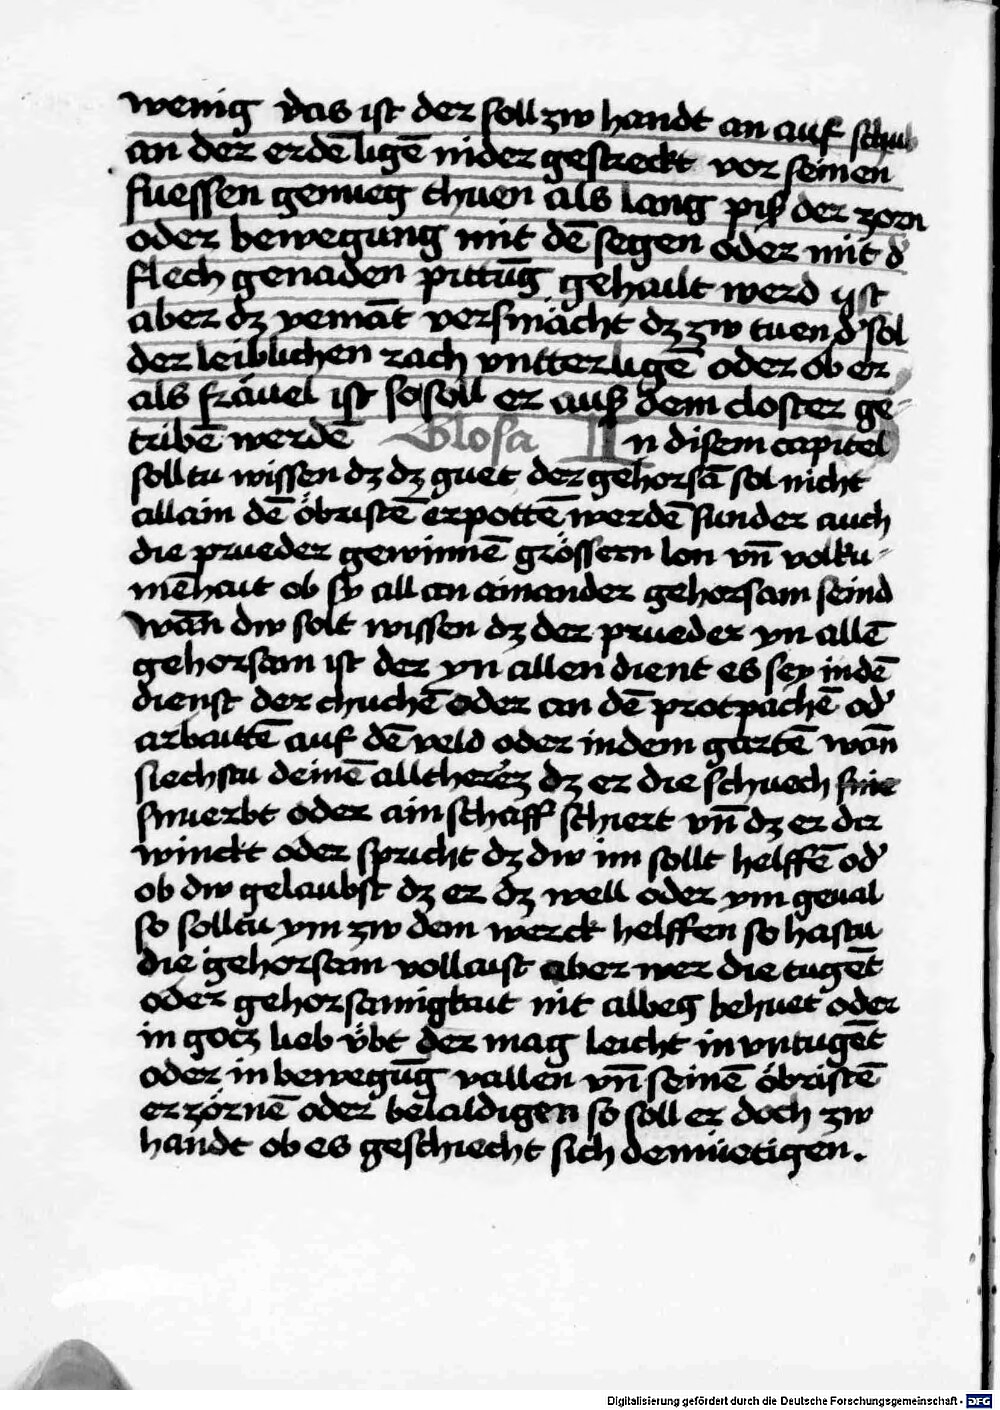 wenig das ist der soll zw handt an auf schub
an der erdē ligē nider gestreckt vor seinen
fuessen genueg thuen als lang piß der zorn
oder bewegung mit dē segen oder mit d'
flech genaden pittūg gehailt werd yst
aber dz yemāt versmächt dz zw tuen d' sol
der leiblichen rach vntterligē oder ob er
als fräuel ist so soll er auß dem closter ge-
tribē werdē Glosa In disem capitel
soll tu wissen dz dz guet der gehorsā sol nicht
allain dē öbristē erpottē werdē sunder auch
die prueder gewinnē grössern lon vn̄ volku-
mēhait ob sy all an ainander gehorsam seind
wān dw solt wissen dz der prueder yn allē
gehorsam ist der yn allen dient es sey in dē
dienst der chuchē oder an dē protpachē od'
arbaittē auf dē veld oder in dem gartē wān
siechstu deinē allherez dz er die schuech
smierbt oder ain schaff schiert vn̄ dz er dir
winckt oder spricht dz dw im sollt helffē od'
ob dw gelaubst dz er dz well oder ym geual
so solltu ym zw dem werck helffen so hastu
die gehorsam vollaist aber wer die tugēt
oder gehorsamigkait nit albeg behuet oder
in gotz lieb vbt der mag leicht in vntugēt
oder in bewegūg vallen vn̄ seinē öbristē
erzörnē oder belaidigen so soll er doch zw
handt ob es geschiecht sich demüetigen.
Digitalisierung gefördert durch die Deutsche Forschungsgemeinschaft - DFG